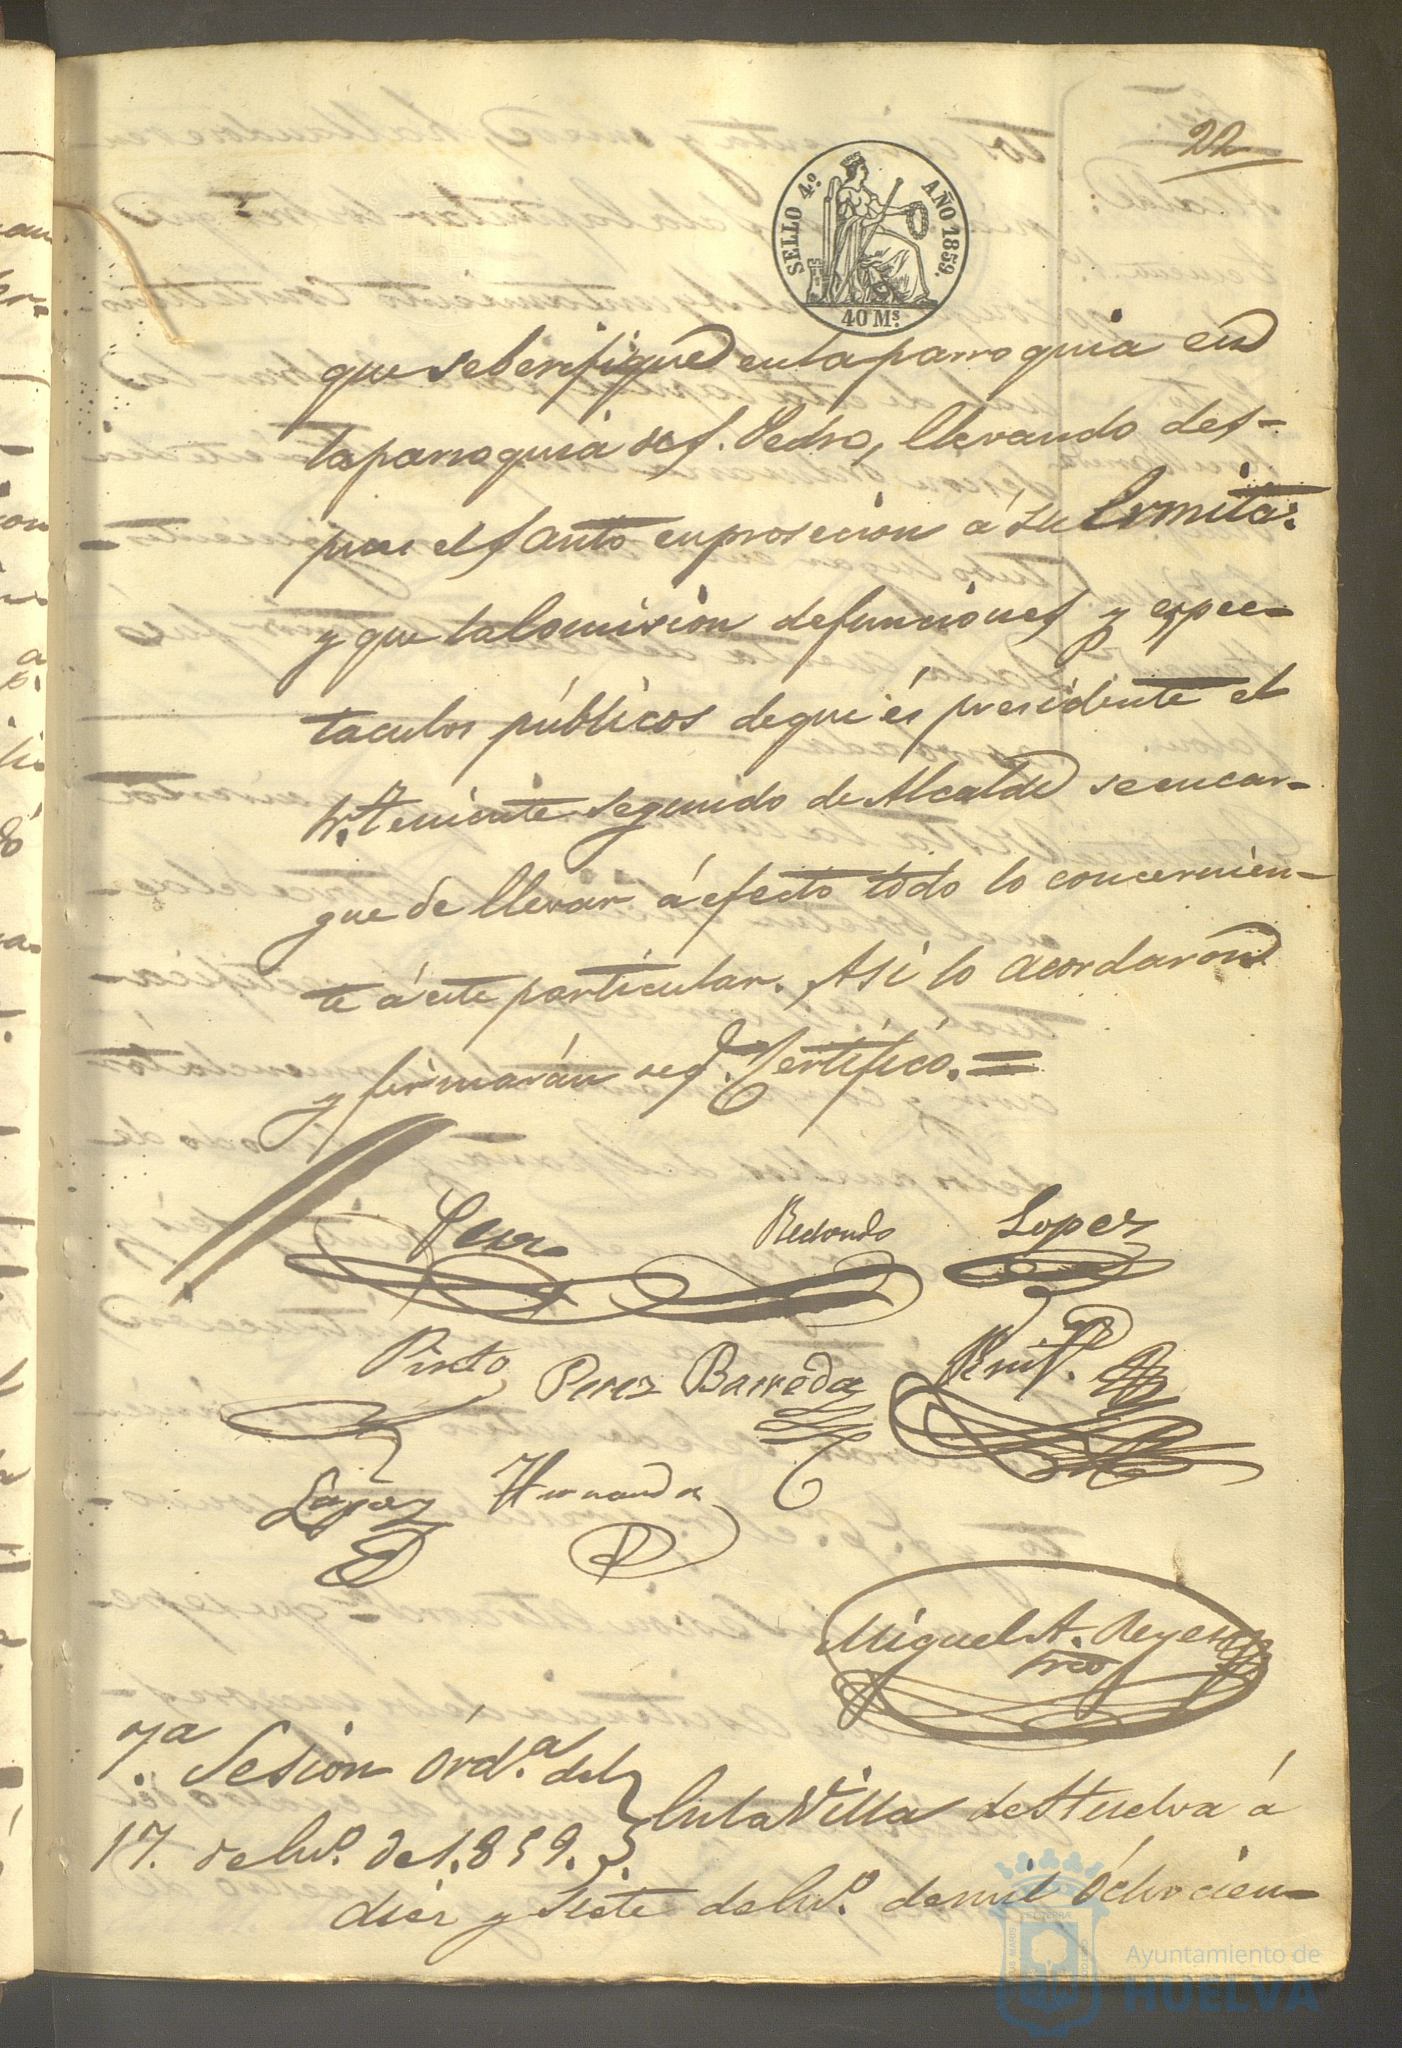 22
SELLO 4.º AÑO 1859.
40 Ms.
que se berifique en la parroquia en
la parroquia de S. Pedro, llevando des-
pues el Santo en prosecion á su Ermita:
y que la Comision de funciones y espec-
taculos públicos de que és presidente el
Sr. Teniente segundo de Alcalde se encar-
gue de llevar á efecto todo lo concernien-
te á este particular. Asi lo acordaron
y firmarán seg. Certifico. =
Redondo Lopez
Pinto Perez Barreda
Lopez Hernandz
Miguel A. Reyes
Srio
7.ª Sesion Órd.ª del
17. de En.º de 1.859.
En la Villa de Huelva á
diez y siete de En.º de mil óchocien-
Ayuntamiento de
HUELVA